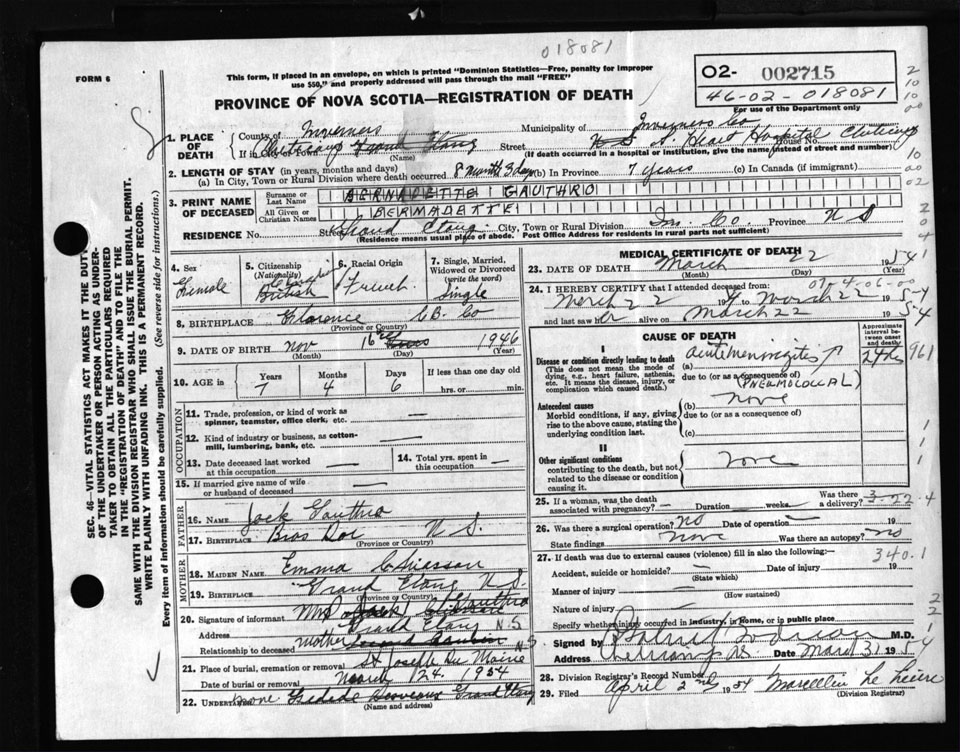 018081
FORM 6
This form, if placed in an envelope, on which is printed "Dominion Statistics—Free, penalty for improper
use $50," and properly addressed will pass through the mail "FREE"
PROVINCE OF NOVA SCOTIA—REGISTRATION OF DEATH
02- 002715
46-02-018081
For use of the Department only
SEC. 46—VITAL STATISTICS ACT MAKES IT THE DUTY
OF THE UNDERTAKER OR PERSON ACTING AS UNDER-
TAKER TO OBTAIN ALL THE PARTICULARS REQUIRED
IN THE "REGISTRATION OF DEATH" AND TO FILE THE
SAME WITH THE DIVISION REGISTRAR WHO SHALL ISSUE THE BURIAL PERMIT.
WRITE PLAINLY WITH UNFADING INK. THIS IS A PERMANENT RECORD.
Every item of information should be carefully supplied. (See reverse side for instructions.)
1. PLACE OF DEATH
County of Inverness Municipality of Inverness Co
If in City or Town Grand Etang (Name) Street Hospital House No.
(If death occurred in a hospital or institution, give the name instead of street and number)
2. LENGTH OF STAY (in years, months and days)
(a) In City, Town or Rural Division where death occurred 8 month 3 days (b) In Province 7 years (c) In Canada (if immigrant)
3. PRINT NAME OF DECEASED
Surname or Last Name BERNADETTE GAUTHRO
All Given or Christian Names BERNADETTE
RESIDENCE No. Street Grand Etang City, Town or Rural Division In. Co. Province N S
(Residence means usual place of abode. Post Office Address for residents in rural parts not sufficient)
4. Sex Female
5. Citizenship (Nationality) Canadian British
6. Racial Origin French
7. Single, Married, Widowed or Divorced (write the word) Single
8. BIRTHPLACE Florence C.B. Co
(Province or Country)
9. DATE OF BIRTH Nov 16 1946
(Month) (Day) (Year)
10. AGE in Years Months Days If less than one day old
7 4 6 hrs. or min.
OCCUPATION
11. Trade, profession, or kind of work as spinner, teamster, office clerk, etc. —
12. Kind of industry or business, as cotton-mill, lumbering, bank, etc. —
13. Date deceased last worked at this occupation —
14. Total yrs. spent in this occupation —
15. If married give name of wife or husband of deceased —
FATHER
16. Name Jack Gauthro
17. Birthplace Bras Dor N S.
(Province or Country)
MOTHER
18. MAIDEN NAME Emma Chiasson
19. BIRTHPLACE Grand Etang N S.
(Province or Country)
20. Signature of informant Mrs Jack Gauthro
Address Grand Etang N.S
Relationship to deceased mother
21. Place of burial, cremation or removal St Joseph Du Moine N S
Date of burial or removal March 24. 1954
22. UNDERTAKER none Grand Etang
(Name and address)
MEDICAL CERTIFICATE OF DEATH
23. DATE OF DEATH March 22 1954
(Month) (Day) (Year)
24. I HEREBY CERTIFY that I attended deceased from:
March 22 to March 22 1954
and last saw her alive on March 22 1954
CAUSE OF DEATH
Approximate interval between onset and death
I
Disease or condition directly leading to death
(This does not mean the mode of dying, e.g., heart failure, asthenia, etc. It means the disease, injury, or complication which caused death.)
(a) acute meningitis
due to (or as a consequence of)
(PNEUMOCOCCAL)
961
Antecedent causes
Morbid conditions, if any, giving rise to the above cause, stating the underlying condition last.
(b) none
due to (or as a consequence of)
(c)
II
Other significant conditions
contributing to the death, but not related to the disease or condition causing it.
none
25. If a woman, was the death associated with pregnancy? — Duration weeks Was there a delivery?
3-22-4
26. Was there a surgical operation? no Date of operation 19
State findings none Was there an autopsy? no
340.1
27. If death was due to external causes (violence) fill in also the following:—
Accident, suicide or homicide? Date of injury 19
(State which)
Manner of injury
(How sustained)
Nature of injury
Specify whether injury occurred in industry, in home, or in public place
Signed by M.D.
Address Date March 31 1954
28. Division Registrar's Record Number
29. Filed April 2nd 1954 Marcellin
(Division Registrar)